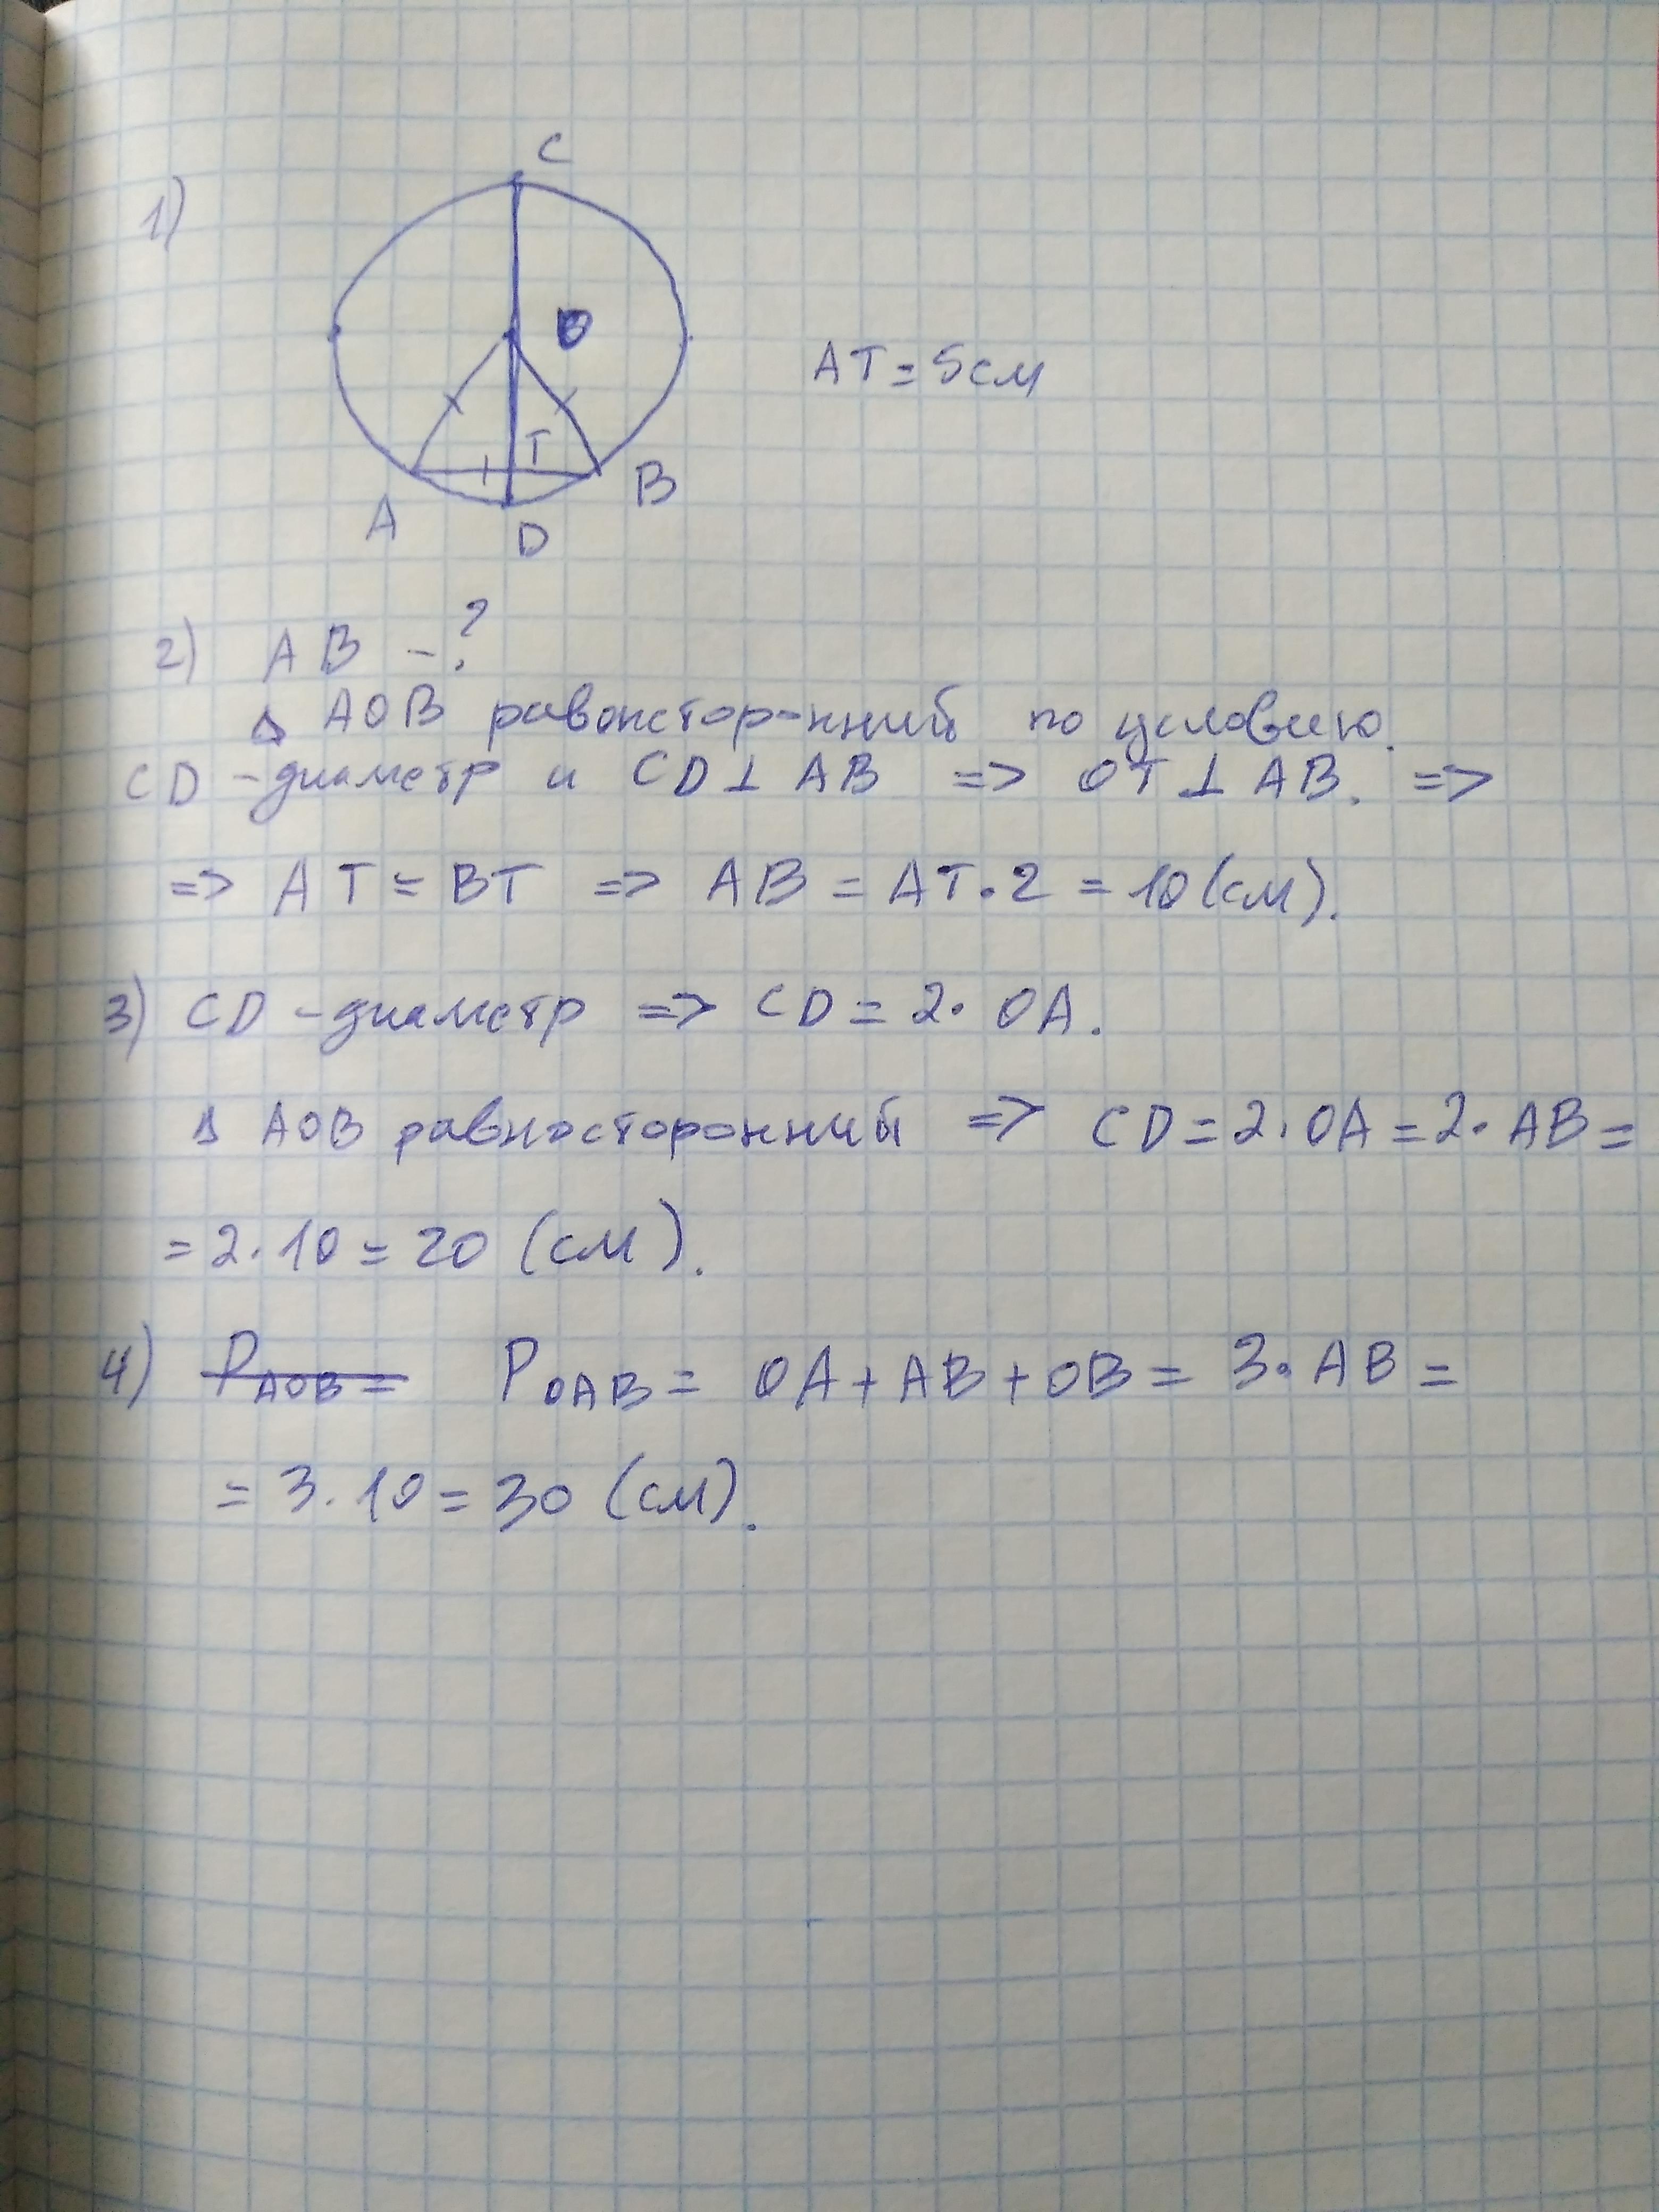 1)
C
O
AT = 5см
T
A
B
D
2) AB - ?
Δ AOB равонсторонний по условию.
CD - диаметр и CD ⊥ AB => OT ⊥ AB. =>
=> AT = BT => AB = AT · 2 = 10 (см).
3) CD - диаметр => CD = 2 · OA.
Δ AOB равносторонний => CD = 2 · OA = 2 · AB =
= 2 · 10 = 20 (см).
4) P AOB = P OAB = OA + AB + OB = 3 · AB =
= 3 · 10 = 30 (см).